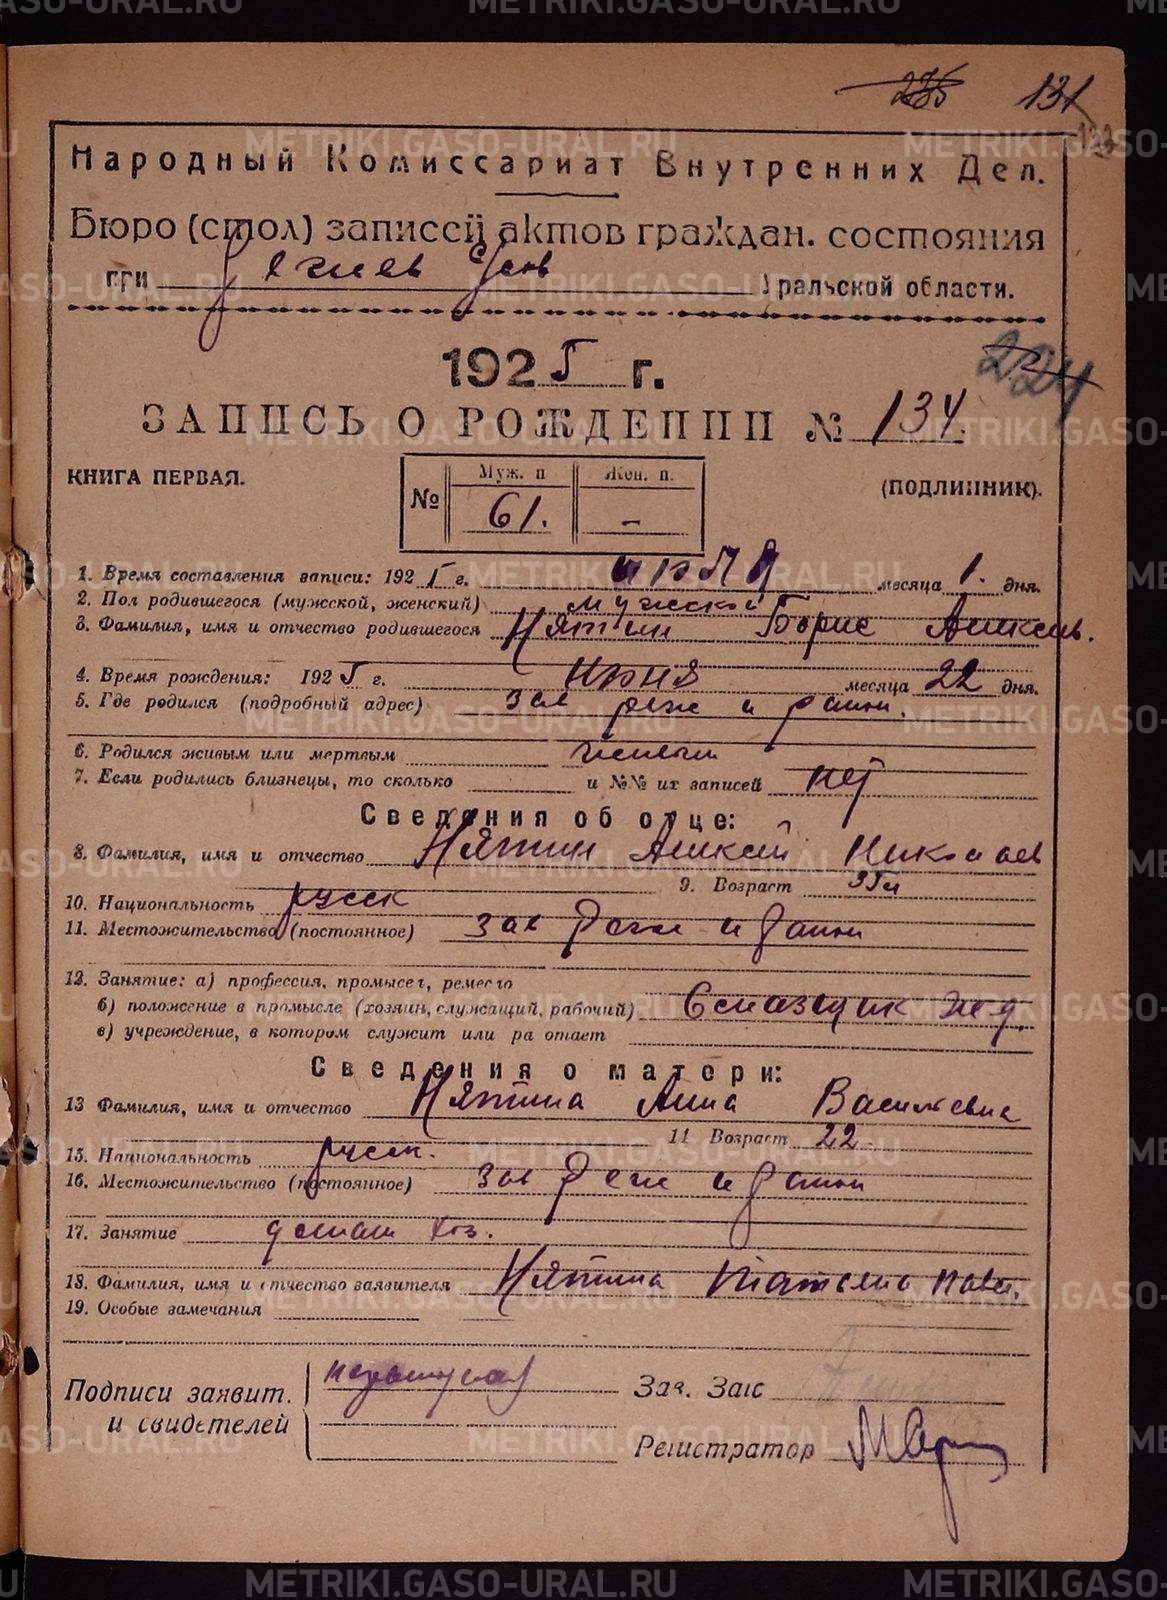 235 131
Народный Комиссариат Внутренних Дел.
Бюро (стол) записей актов граждан. состояния
при Уральской области.
224
1925 г.
ЗАПИСЬ О РОЖДЕНИИ № 134.
КНИГА ПЕРВАЯ.
(ПОДЛИННИК).
№ Муж. п Жен. п.
61. –
1. Время составления записи: 1925 г. июля месяца 1. дня.
2. Пол родившегося (мужской, женский) мужской
3. Фамилия, имя и отчество родившегося Нятин Борис Алексеев.
4. Время рождения: 1925 г. июня месяца 22 дня.
5. Где родился (подробный адрес) Реж и
6. Родился живым или мертвым живым
7. Если родились близнецы, то сколько и №№ их записей нет
Сведения об отце:
8. Фамилия, имя и отчество Нятин Алексей Николаев
9. Возраст
10. Национальность русск
11. Местожительство (постоянное) Реж и
12. Занятие: а) профессия, промысел, ремесло
б) положение в промысле (хозяин, служащий, рабочий) Смазщик жел д.
в) учреждение, в котором служит или работает
Сведения о матери:
13 Фамилия, имя и отчество Нятина Анна Васильевна
14 Возраст 22
15. Национальность русск.
16. Местожительство (постоянное) Реж и
17. Занятие домаш хоз.
18. Фамилия, имя и отчество заявителя Нятина Татьяна Павл.
19. Особые замечания
Подписи заявит. и свидетелей неграмотная
Зав. Загс
Регистратор